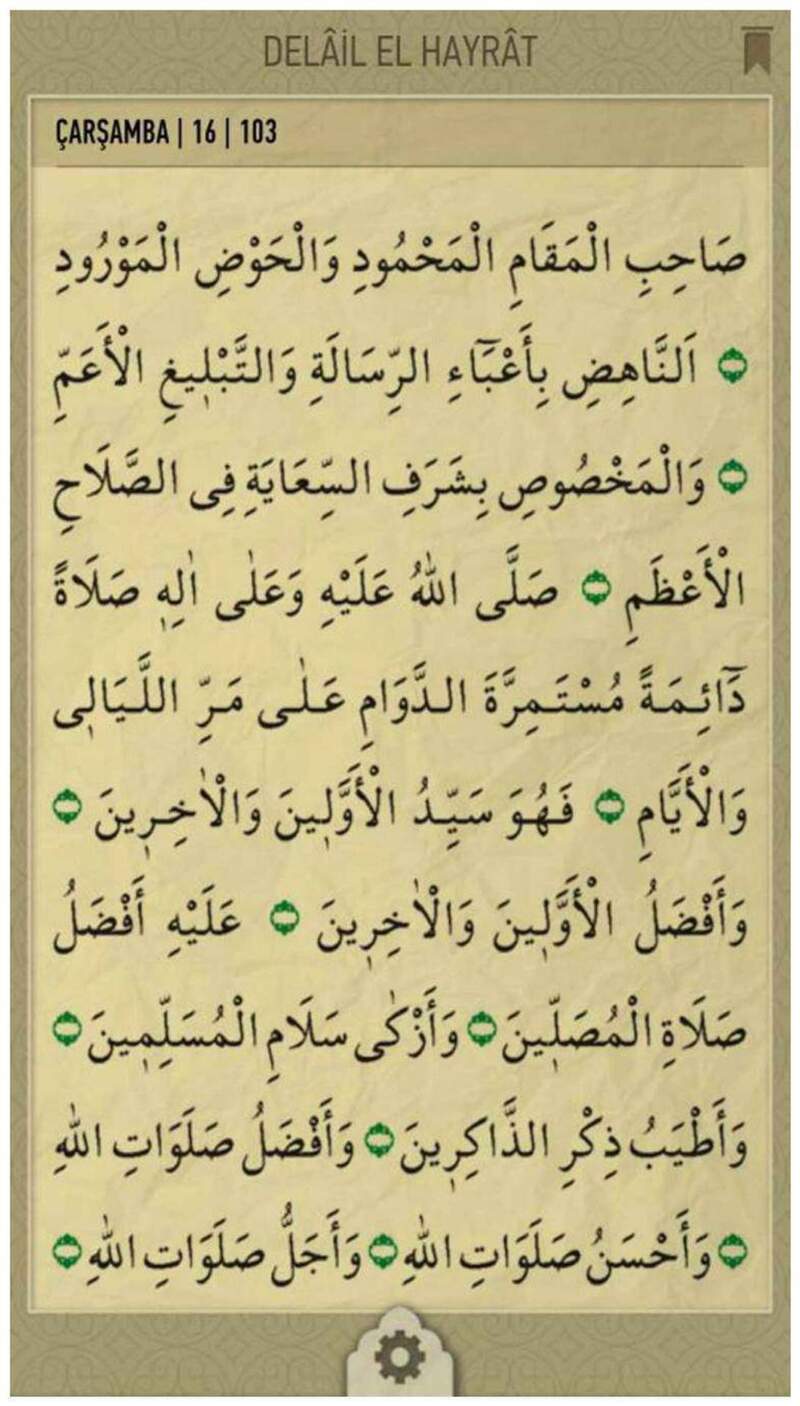 DELÂİL EL HAYRÂT
ÇARŞAMBA | 16 | 103
صَاحِبِ الْمَقَامِ الْمَحْمُودِ وَالْحَوْضِ الْمَوْرُودِ
اَلنَّاهِضِ بِأَعْبَٓاءِ الرِّسَالَةِ وَالتَّبْلٖيغِ الْأَعَمِّ
وَالْمَخْصُوصِ بِشَرَفِ السِّعَايَةِ فِى الصَّلَاحِ
الْأَعْظَمِ صَلَّى اللهُ عَلَيْهِ وَعَلٰى اٰلِهٖ صَلَاةً
دَٓائِمَةً مُسْتَمِرَّةَ الدَّوَامِ عَلٰى مَرِّ اللَّيَالٖى
وَالْأَيَّامِ فَهُوَ سَيِّدُ الْأَوَّلٖينَ وَالْاٰخِرٖينَ
وَأَفْضَلُ الْأَوَّلٖينَ وَالْاٰخِرٖينَ عَلَيْهِ أَفْضَلُ
صَلَاةِ الْمُصَلّٖينَ وَأَزْكٰى سَلَامِ الْمُسَلِّمٖينَ
وَأَطْيَبُ ذِكْرِ الذَّاكِرٖينَ وَأَفْضَلُ صَلَوَاتِ اللهِ
وَأَحْسَنُ صَلَوَاتِ اللهِ وَأَجَلُّ صَلَوَاتِ اللهِ